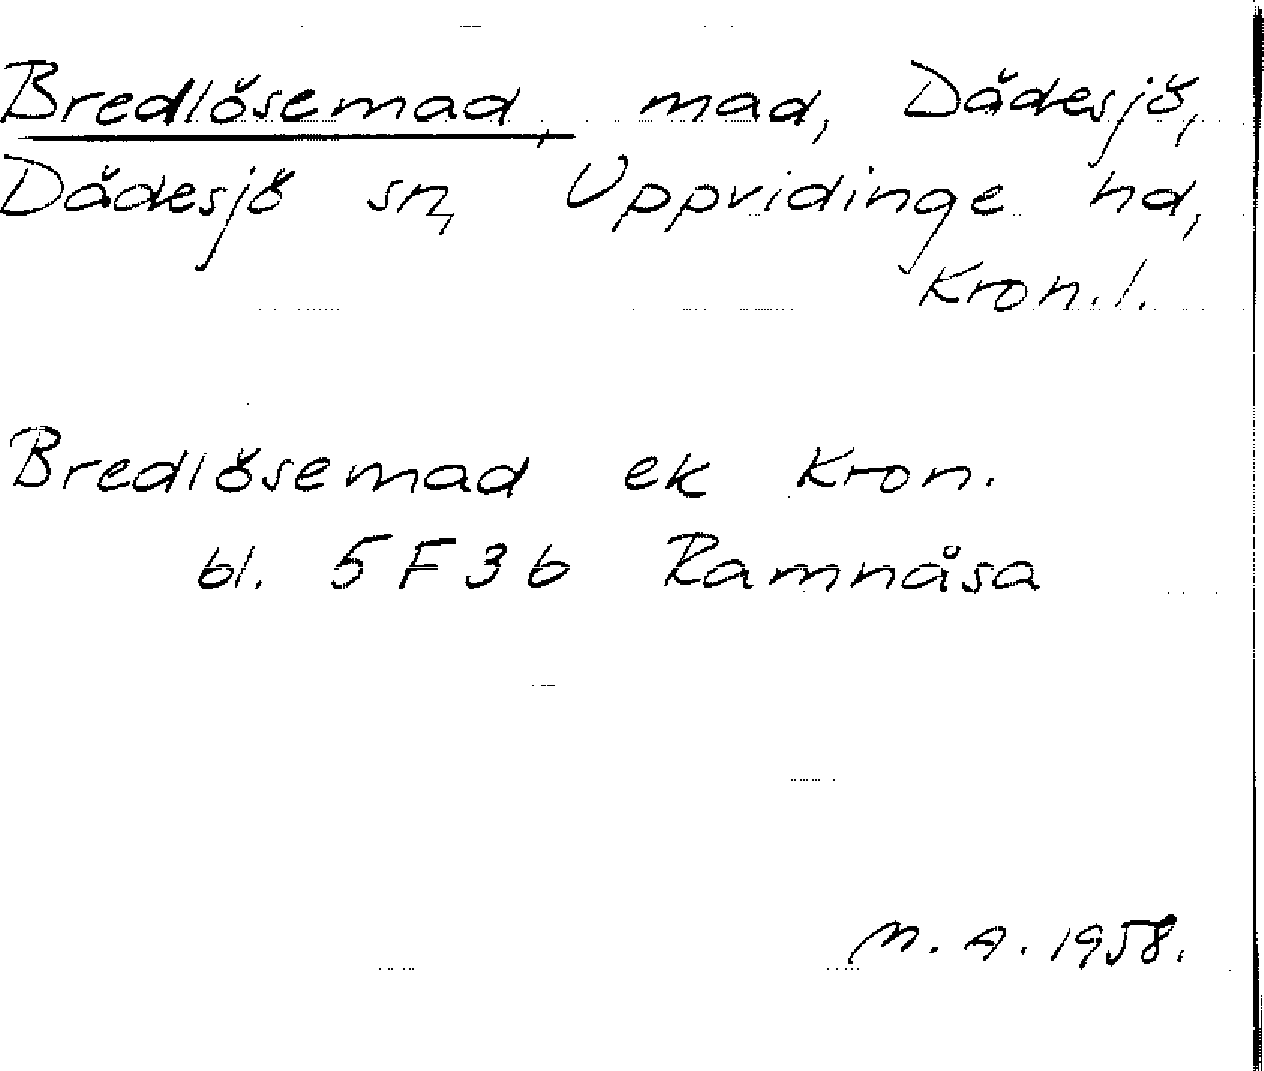 Bredlösemad, mad, Dädesjö,
Dädesjö sn, Uppvidinge hd,
Kron.l.
Bredlösemad ek Kron.
bl. 5F3b Ramnåsa
M. A. 1958.